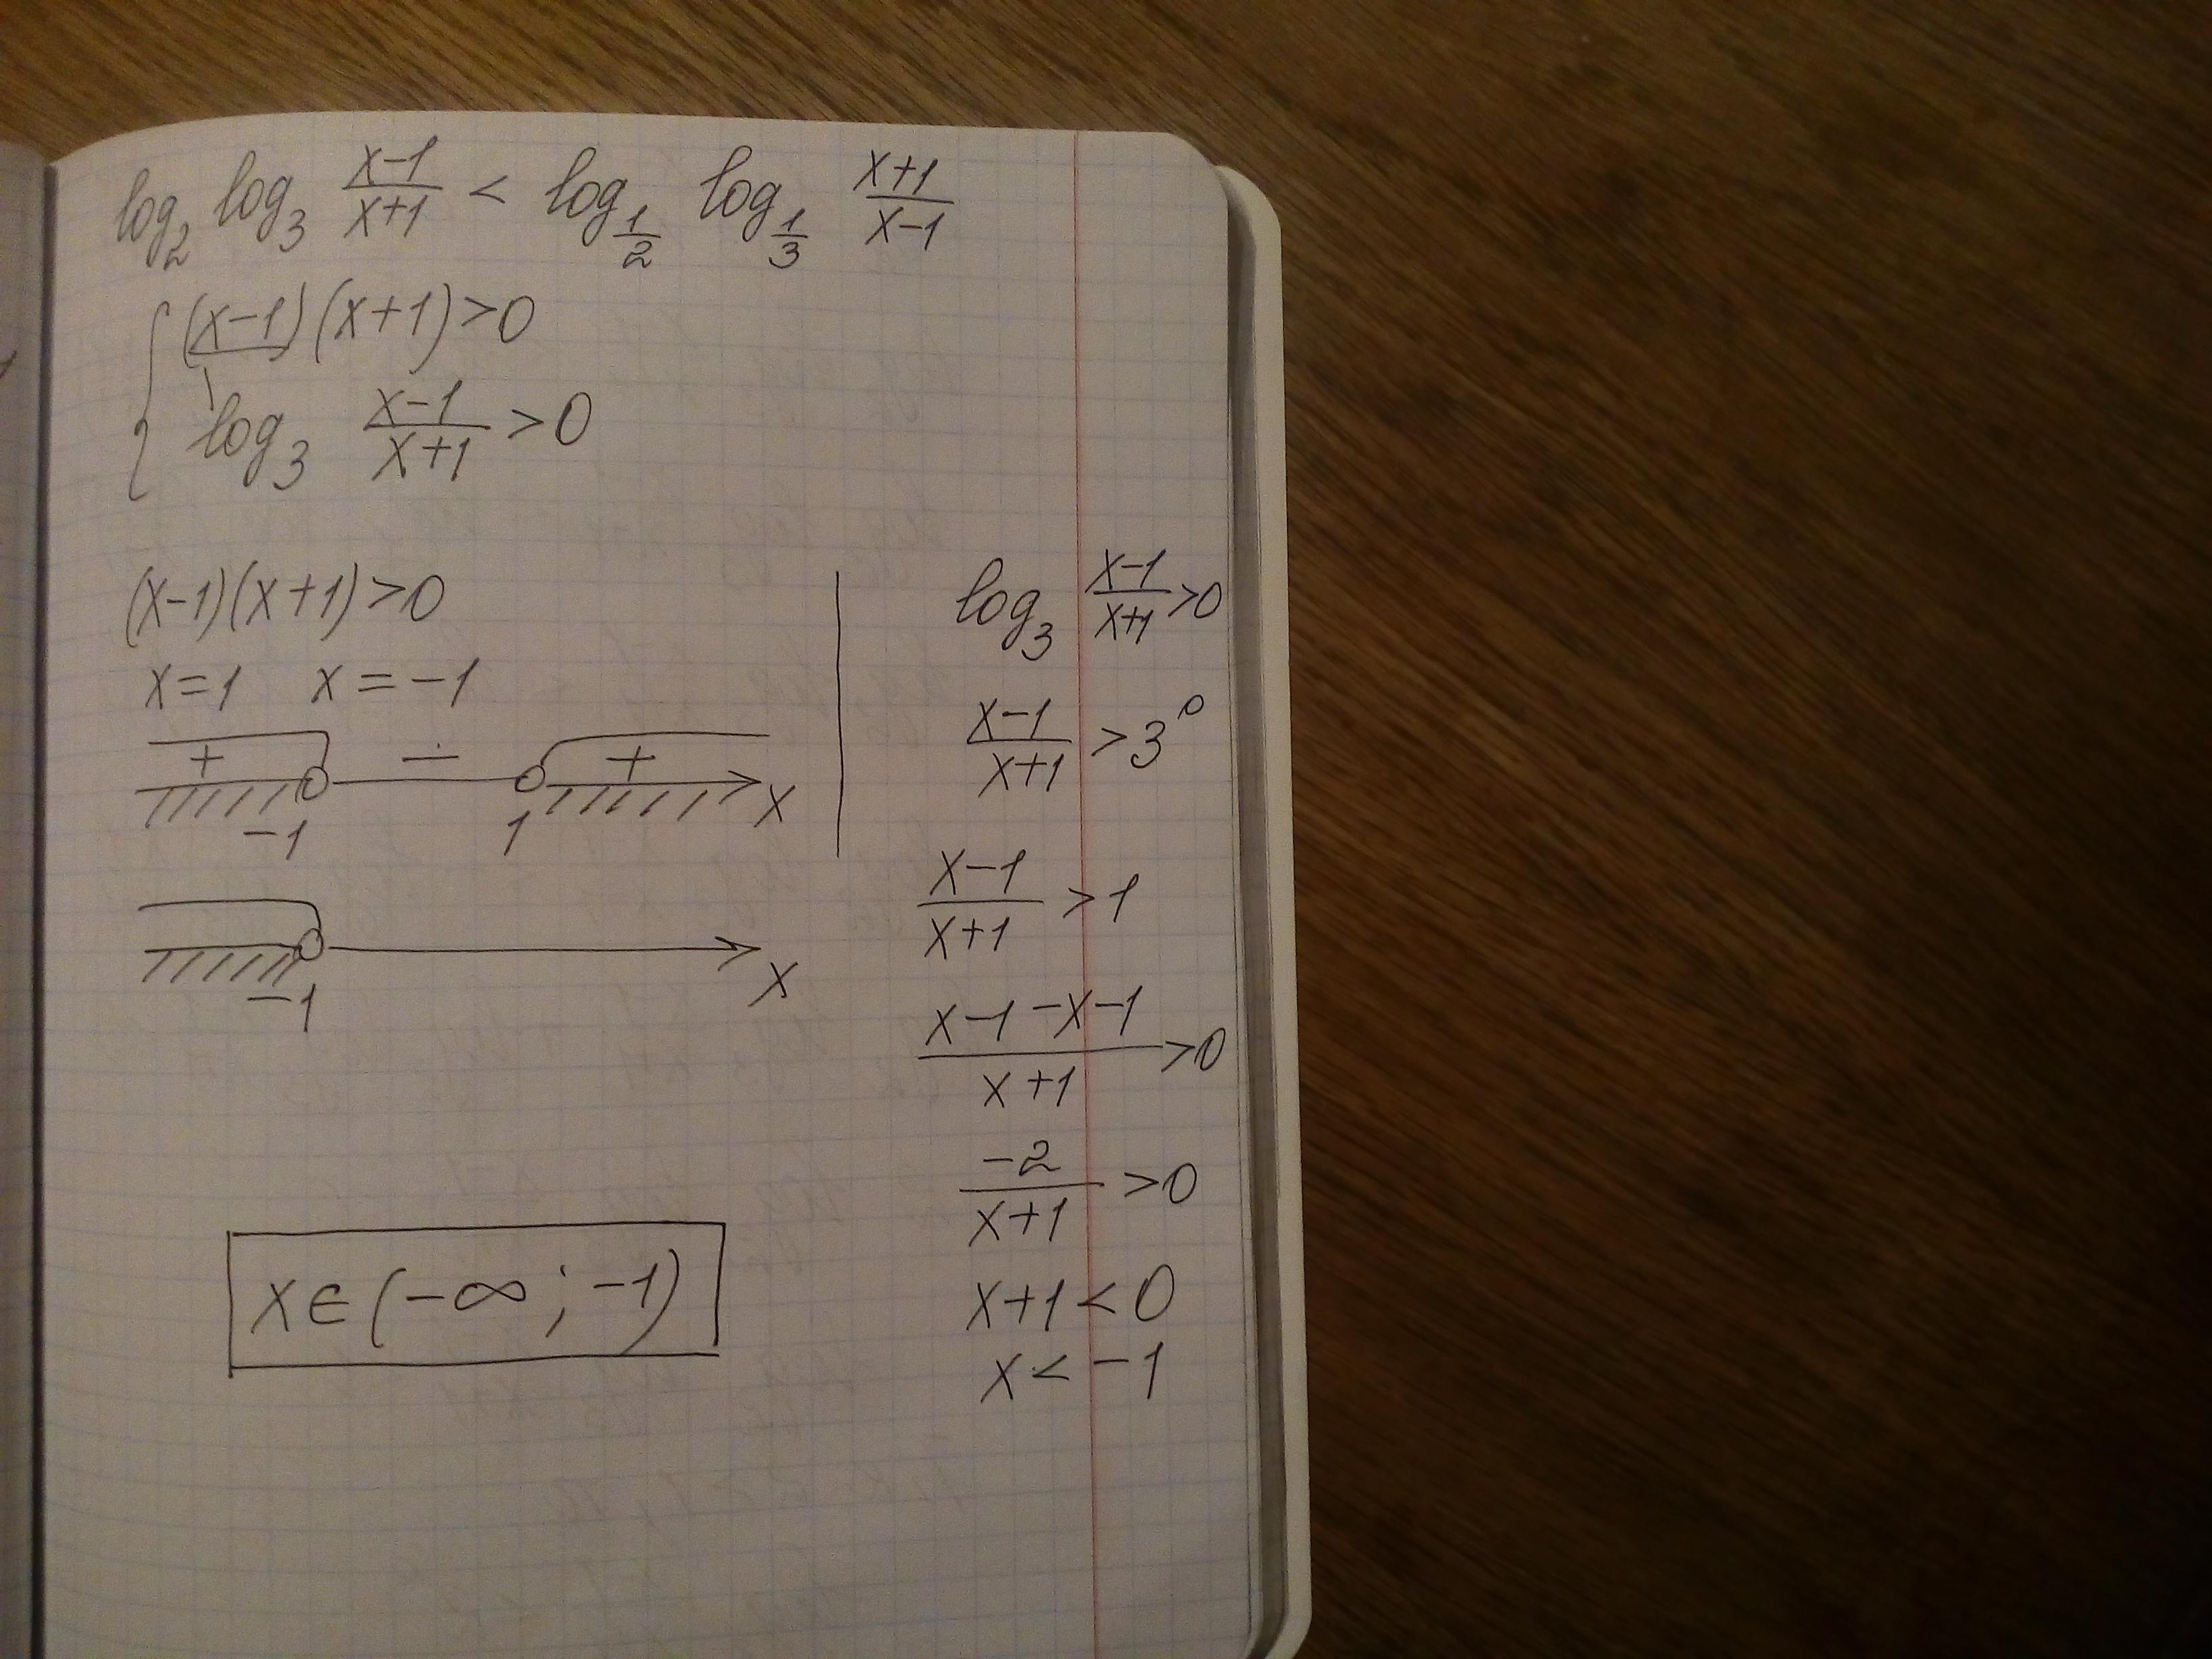 log₂ log₃ (x-1)/(x+1) < log_{1/2} log_{1/3} (x+1)/(x-1)
{ (x-1)(x+1)>0
log₃ (x-1)/(x+1) > 0
(x-1)(x+1)>0
x=1 x=-1
+ - +
-1 1 x
-1 x
x∈(-∞;-1)
log₃ (x-1)/(x+1) >0
(x-1)/(x+1) > 3⁰
(x-1)/(x+1) > 1
(x-1-x-1)/(x+1) >0
-2/(x+1) >0
x+1<0
x<-1